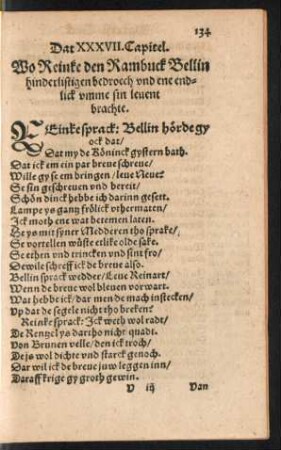 134
Dat XXXVII. Capitel.
Wo Reinke den Rambuck Bellin
hinderlistigen bedroech vnd ene end-
lick vmme sin leuent
brachte.
REinke sprack: Bellin hörde gy
ock dat/
Dat my de Köninck gystern bath.
Dat ick em ein par breue schreue/
Wille gy se em bringen / leue Neue?
Se sin geschreuen vnd bereit/
Schön dinck hebbe ich darinn gesett.
Lampe ys gantz frölick vthermaten/
Ick moth ene wat betemen laten.
He ys mit syner Medderen tho sprake/
Se vortellen wüste etlike olde sake.
Se ethen vnd trincken vnd sint fro/
Dewile schreff ick de breue also.
Bellin sprack wedder/ Leue Reinart/
Wenn de breue wol bleuen vorwart.
Wat hebbe ick/ dar men de mach instecken/
Vp dat de segele nicht tho breken?
Reinke sprack: Ick weth wol radt/
De Rentzel ys dartho nicht quadt.
Von Brunen velle/ den ick troch/
De is wol dichte vnd starck genoch.
Dar wil ick de breue juw leggen inn/
Daraff krige gy groth gewin.
V iij Van